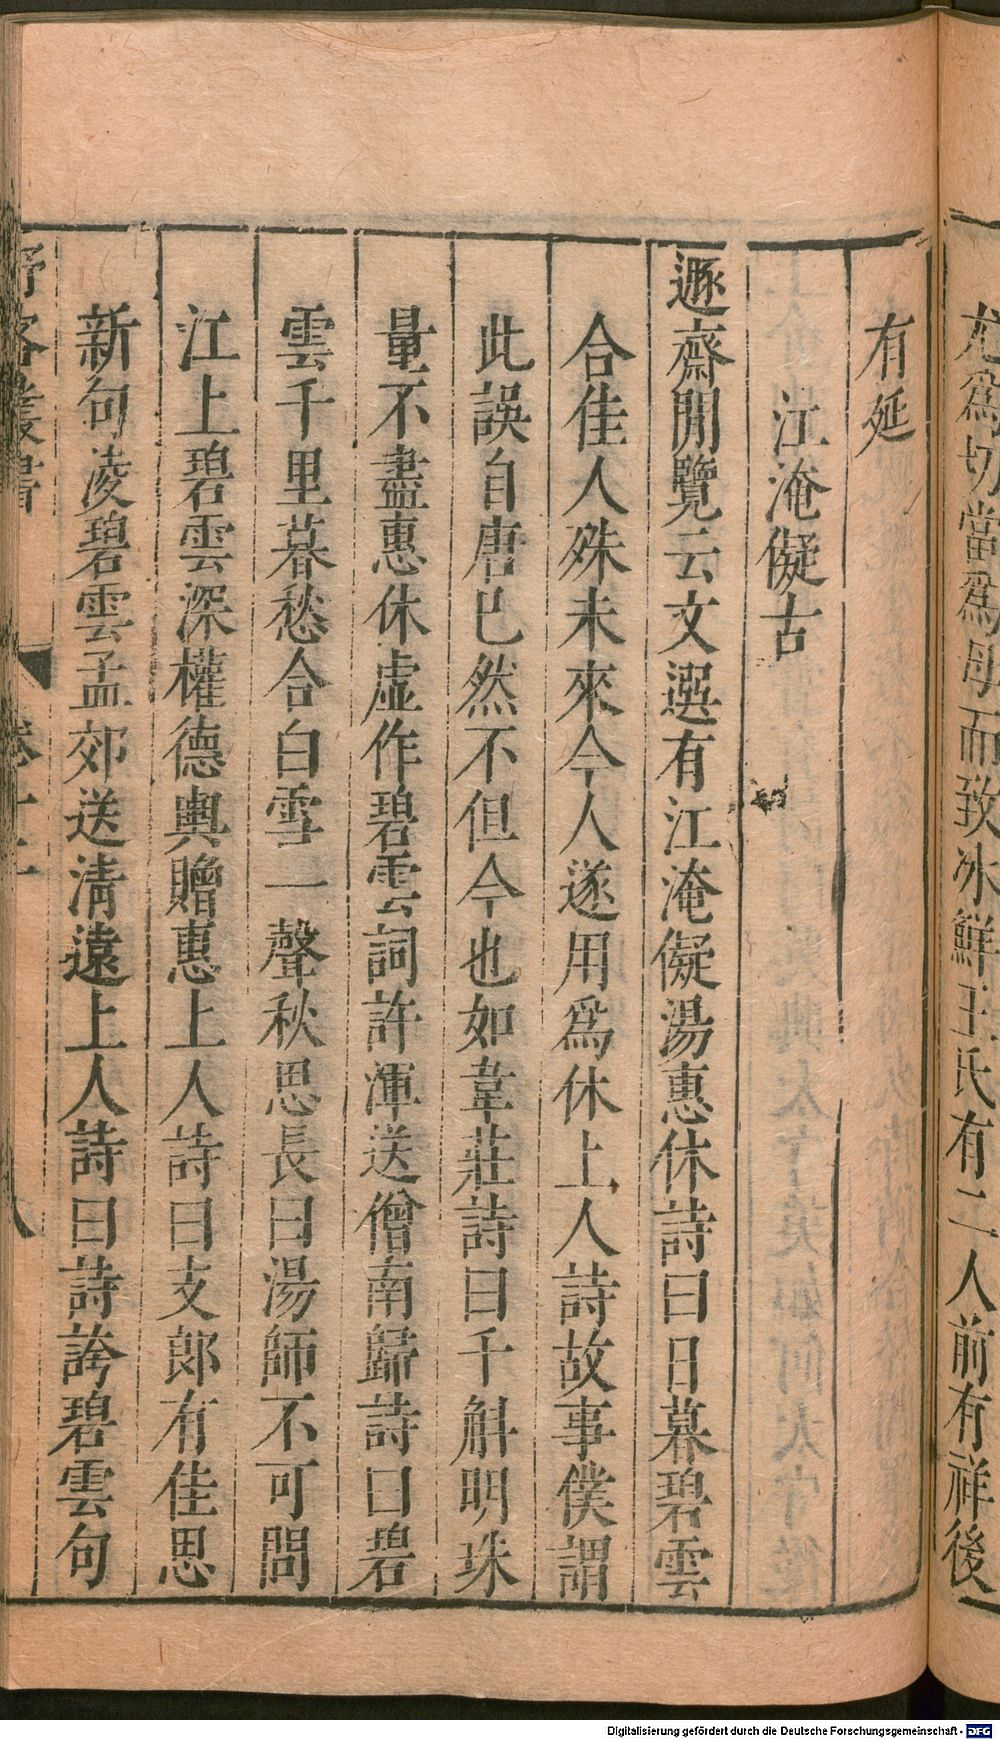 尤爲切當爲母而致冰鮮王氏有二人前有祥後
有延
江淹儗古
遯齋閒覽云文選有江淹儗湯惠休詩曰日暮碧雲
合佳人殊未來今人遂用爲休上人詩故事僕謂
此誤自唐已然不但今也如韋莊詩曰千斛明珠
量不盡惠休虛作碧雲詞許渾送僧南歸詩曰碧
雲千里暮愁合白雪一聲秋思長曰湯師不可問
江上碧雲深權德輿贈惠上人詩曰支郎有佳思
新句凌碧雲孟郊送清遠上人詩曰詩誇碧雲句
野客叢書 卷十二 八
Digitalisierung gefördert durch die Deutsche Forschungsgemeinschaft - DFG